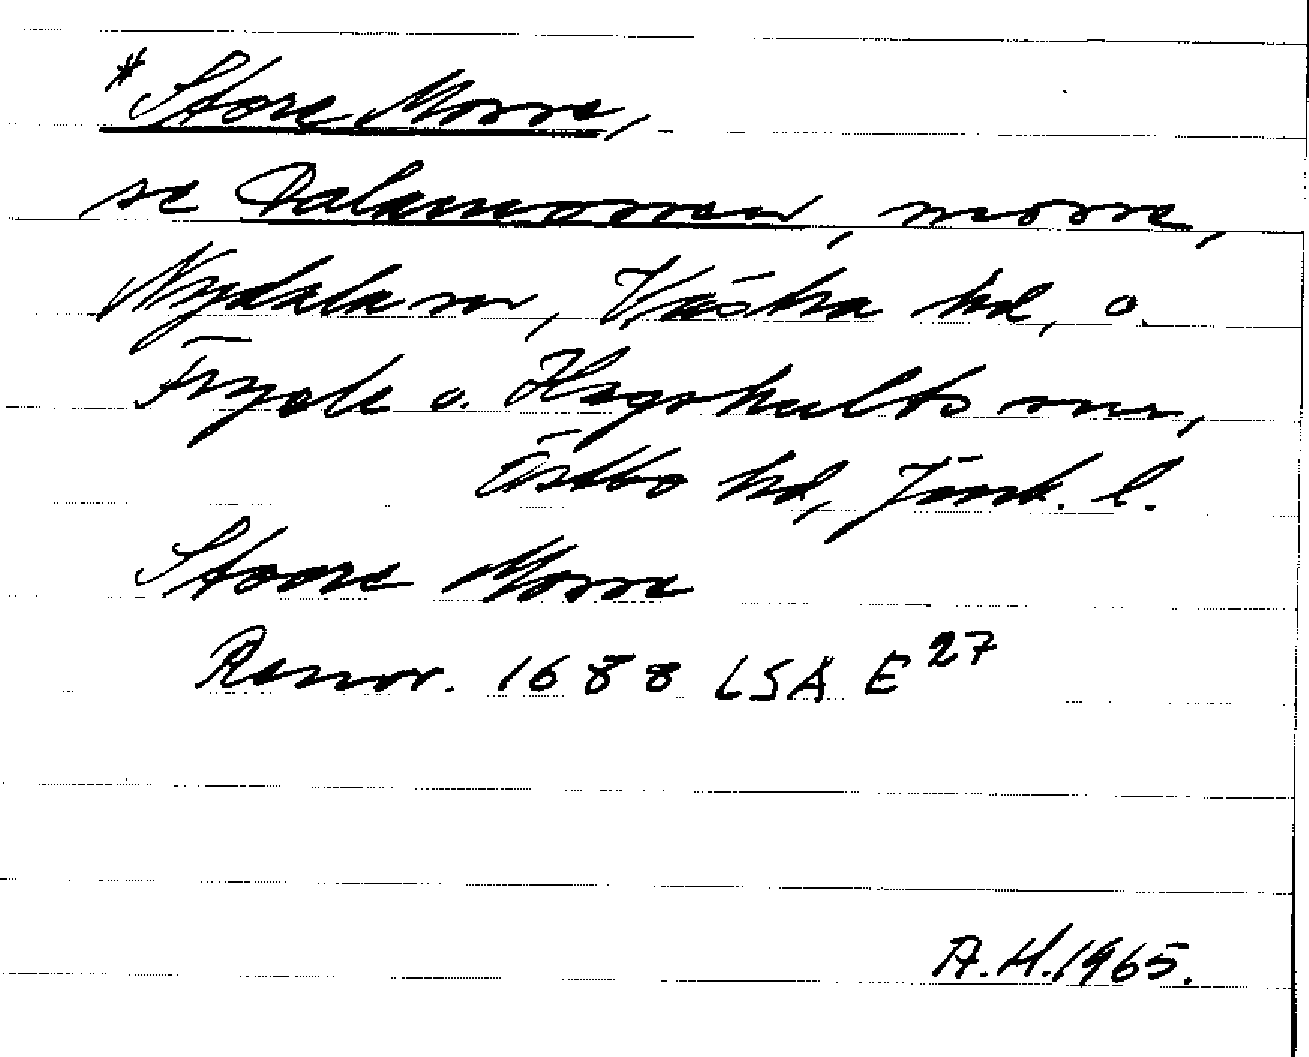 * Store Morre,
se Dalamorren, morre,
Nydala sn, Västra hd, o.
Fryele o. Hagshults snr,
Östbo hd, Jönk. l.
Stoore Morre
Renov. 1688 LSA E 27
A.H. 1965.